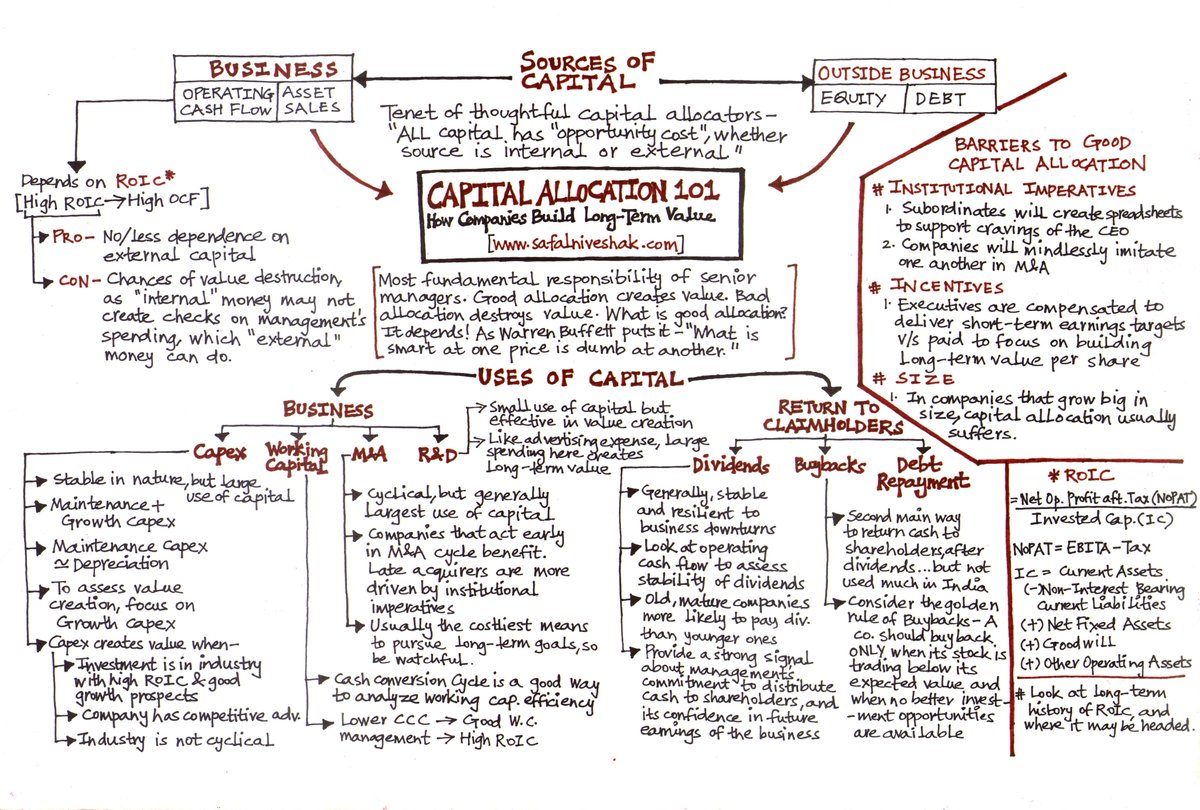 SOURCES OF
CAPITAL
BUSINESS
OPERATING
CASH FLOW
ASSET
SALES
OUTSIDE BUSINESS
EQUITY
DEBT
Tenet of thoughtful capital allocators-
"ALL capital has "opportunity cost", whether
source is internal or external"
CAPITAL ALLOCATION 101
How Companies Build Long-Term Value
[www.safalniveshak.com]
Depends on ROIC*
[High ROIC→High OCF]
PRO- No/less dependence on
external capital
CON- Chances of value destruction,
as "internal" money may not
create checks on management's
spending, which "external"
money can do.
Most fundamental responsibility of senior
managers. Good allocation creates value. Bad
allocation destroys value. What is good allocation?
It depends! As Warren Buffett puts it-"What is
smart at one price is dumb at another."
BARRIERS TO GOOD
CAPITAL ALLOCATION
# INSTITUTIONAL IMPERATIVES
1. Subordinates will create spreadsheets
to support cravings of the CEO
2. Companies will mindlessly imitate
one another in M&A
# INCENTIVES
1. Executives are compensated to
deliver short-term earnings targets
v/s paid to focus on building
Long-term value per share
# SIZE
1. In companies that grow big in
size, capital allocation usually
suffers.
USES OF CAPITAL
BUSINESS
Capex
Working
Capital
M&A
R&D
Small use of capital but
effective in value creation
Like advertising expense, large
spending here creates
Long-term value
Stable in nature, but large
use of capital
Maintenance +
Growth Capex
Maintenance Capex
≃ Depreciation
To assess value
creation, focus on
Growth Capex
Capex creates value when-
Investment is in industry
with high ROIC & good
growth prospects
Company has competitive adv.
Industry is not cyclical
Cyclical, but generally
Largest use of capital
Companies that act early
in M&A cycle benefit.
Late acquirers are more
driven by institutional
imperatives
Usually the costliest means
to pursue long-term goals, so
be watchful.
Cash conversion Cycle is a good way
to analyze working cap. efficiency
Lower CCC → Good W.C.
management → High ROIC
RETURN TO
CLAIMHOLDERS
Dividends
Buybacks
Debt
Repayment
Generally, stable
and resilient to
business downturns
Look at operating
cash flow to assess
stability of dividends
Old, mature companies
more likely to pay div.
than younger ones
Provide a strong signal
about management's
commitment to distribute
cash to shareholders, and
its confidence in future
earnings of the business
Second main way
to return cash to
shareholders, after
dividends...but not
used much in India
Consider the golden
rule of Buybacks - A
co. should buy back
ONLY when its stock is
trading below its
expected value and
when no better invest-
-ment opportunities
are available
* ROIC
= Net Op. Profit aft. Tax (NOPAT)
Invested Cap. (IC)
NOPAT = EBITA-Tax
IC = Current Assets
(-)Non-Interest Bearing
Current Liabilities
(+) Net Fixed Assets
(+) Goodwill
(+) Other Operating Assets
# Look at Long-term
history of ROIC, and
where it may be headed.